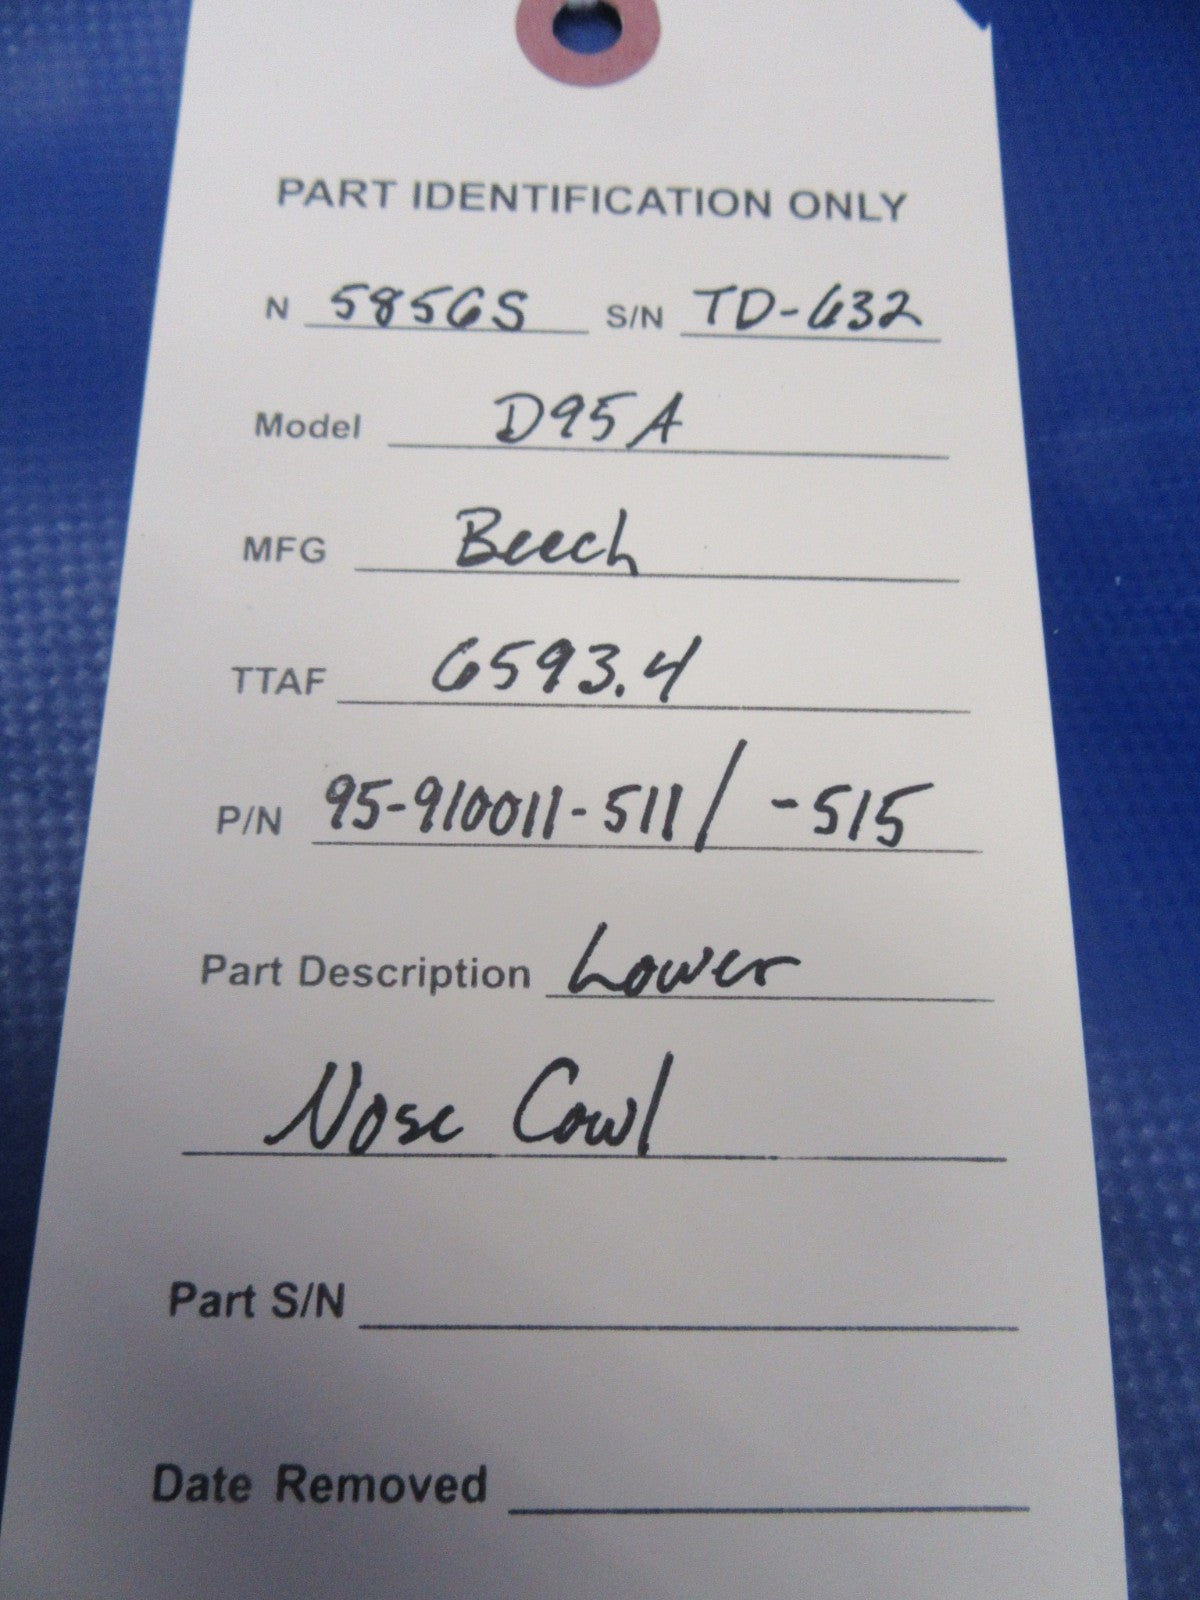 PART IDENTIFICATION ONLY
N 5856S S/N TD-632
Model D95A
MFG Beech
TTAF 6593.4
P/N 95-910011-511/ -515
Part Description Lower
Nose Cowl
Part S/N
Date Removed